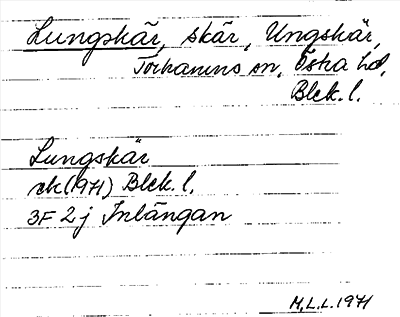 Lungskär, skär, Ungskär,
Torhamns sn, Östra hd,
Blek. l.
Lungskär
rk (1971) Blek. l.
3F 2j Inlängan
M.L.L. 1971